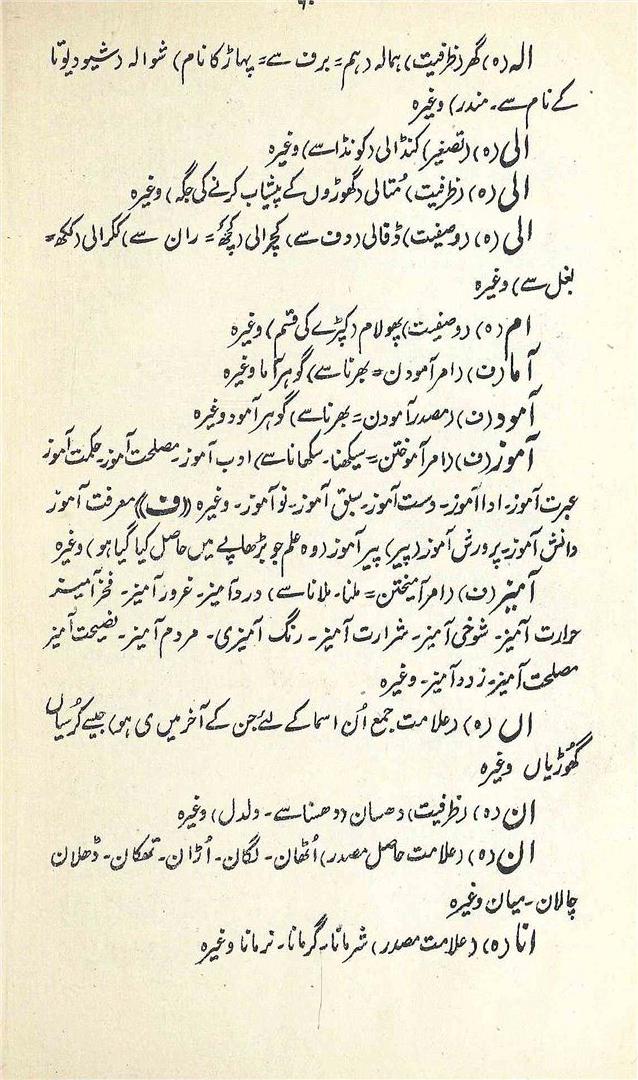 ۶۰
الہ (ہ) گھر (ظرفیت) ہمالہ (ہم = برف سے = پہاڑ کا نام) شوالہ (شیو دیوتا
کے نام سے۔ مندر) وغیرہ
الی (ہ) (تصغیر) کنڈالی (کونڈا سے) وغیرہ
الی (ہ) (ظرفیت) مُتالی (گھوڑوں کے پیشاب کرنے کی جگہ) وغیرہ
الی (ہ) (وصفیت) ڈفالی (دف سے) کچھرالی (کچھ = ران سے) ککرالی (ککھ =
بغل سے) وغیرہ
ام (ہ) (وصفیت) پھولام (کپڑے کی قسم) وغیرہ
آما (ف) (امر آمودن = بھرنا سے) گوہر آما وغیرہ
آمود (ف) (مصدر آمودن = بھرنا سے) گوہر آمود وغیرہ
آموز (ف) (امر آموختن = سیکھنا۔ سکھانا سے) ادب آموز۔ مصلحت آموز۔ حکمت آموز
عبرت آموز۔ ادا آموز۔ دست آموز۔ سبق آموز۔ نو آموز۔ وغیرہ ((ف)) معرفت آموز
دانش آموز۔ پرورش آموز (پیر) پیر آموز (وہ علم جو بڑھاپے میں حاصل کیا گیا ہو) وغیرہ
آمیز (ف) (امر آمیختن = ملنا۔ ملانا سے) درد آمیز۔ غرور آمیز۔ فخر آمیز
حرارت آمیز۔ شوخی آمیز۔ شرارت آمیز۔ رنگ آمیزی۔ مردم آمیز۔ نصیحت آمیز
مصلحت آمیز۔ زود آمیز۔ وغیرہ
اں (ہ) (علامت جمع اُن اسما کے لئے جن کے آخر میں ی ہو) جیسے کُرسیاں
گھوڑیاں وغیرہ
ان (ہ) (ظرفیت) دھسان (دھسنا سے۔ دلدل) وغیرہ
ان (ہ) (علامت حاصل مصدر) اُٹھان۔ لگان۔ اُڑان۔ تھکان۔ ڈھلان
چالان۔ میان وغیرہ
انا (ہ) (علامت مصدر) شرمانا۔ گرمانا۔ نرمانا وغیرہ